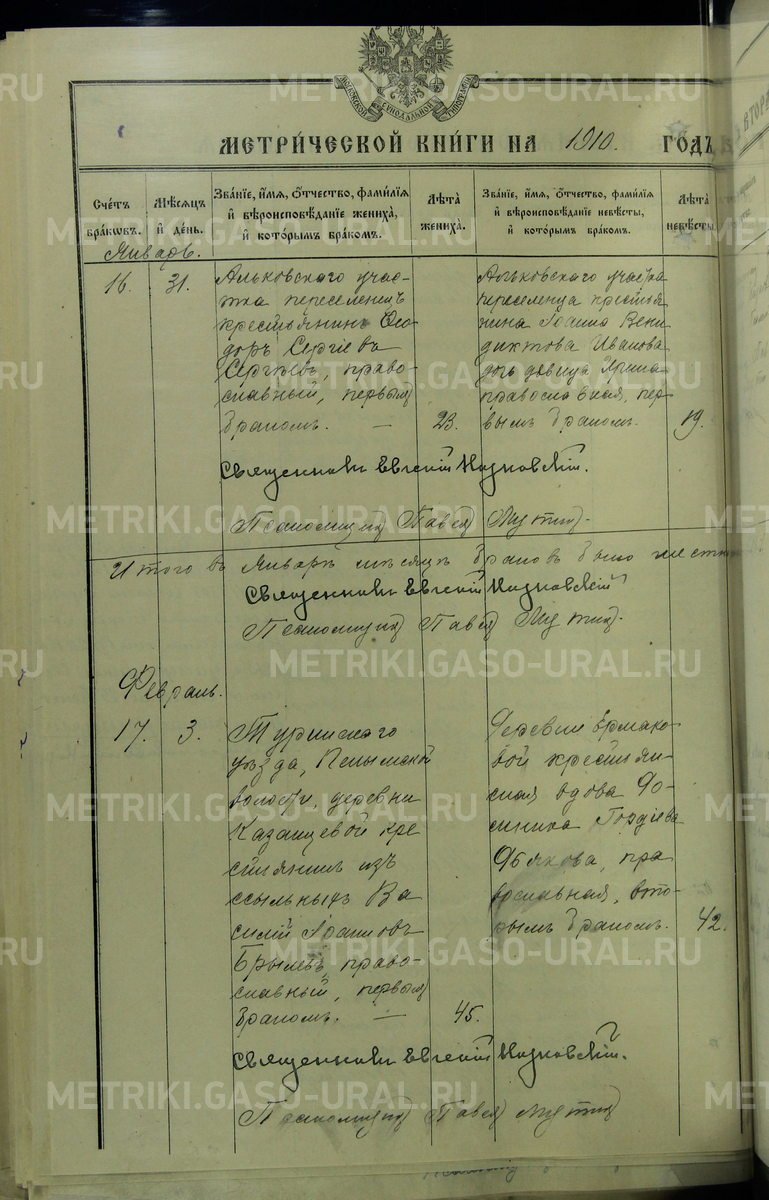 МОСКОВСКОЙ СѴНОДАЛЬНОЙ ТИПОГРАФІИ
МЕТРИ́ЧЕСКОЙ КНИ́ГИ НА 1910. ГОДЪ
Сче́тъ бра́кωвъ.
Мѣ́сяцъ и҆ де́нь.
Зва́нїе, и҆́мя, ѻ҆́тчество, фами́лїя и҆ вѣроисповѣ́данїе жениха̀, и҆ кото́рымъ бра́комъ.
Лѣ́та жениха̀.
Зва́нїе, и҆́мя, ѻ҆́тчество, фами́лїя и҆ вѣроисповѣ́данїе невѣ́сты, и҆ кото́рымъ бра́комъ.
Лѣ́та невѣ́сты.
Январь.
16.
31.
Альковского учас-
тка переселенецъ
крестьянинъ Ѳео-
доръ Сергіевъ
Сергѣевъ, право-
славный, первымъ
бракомъ. —
23.
Альковского участка
переселенца крестья-
нина Іоанна Вени
диктова Иванова
дочь девица Ирина
православная, пер-
вымъ бракомъ.
19.
Священникъ Евгеній
Псаломщикъ Павелъ
Итого въ Январѣ мѣсяцѣ браковъ было
Священникъ Евгеній
Псаломщикъ Павелъ
Февраль.
17.
3.
Туринского
уѣзда, Пелымской
волости, деревни
Казанцевой кре
стьянинъ изъ
ссыльныхъ Ва
силій Іоанновъ
Брылевъ, право-
славный, первымъ
бракомъ. —
45.
Деревни Ермако-
вой крестьян-
ская вдова
Гордіева
пра
вославная, вто-
рымъ бракомъ.
42.
Священникъ Евгеній
Псаломщикъ Павелъ
METRIKI.GASO-URAL.RU